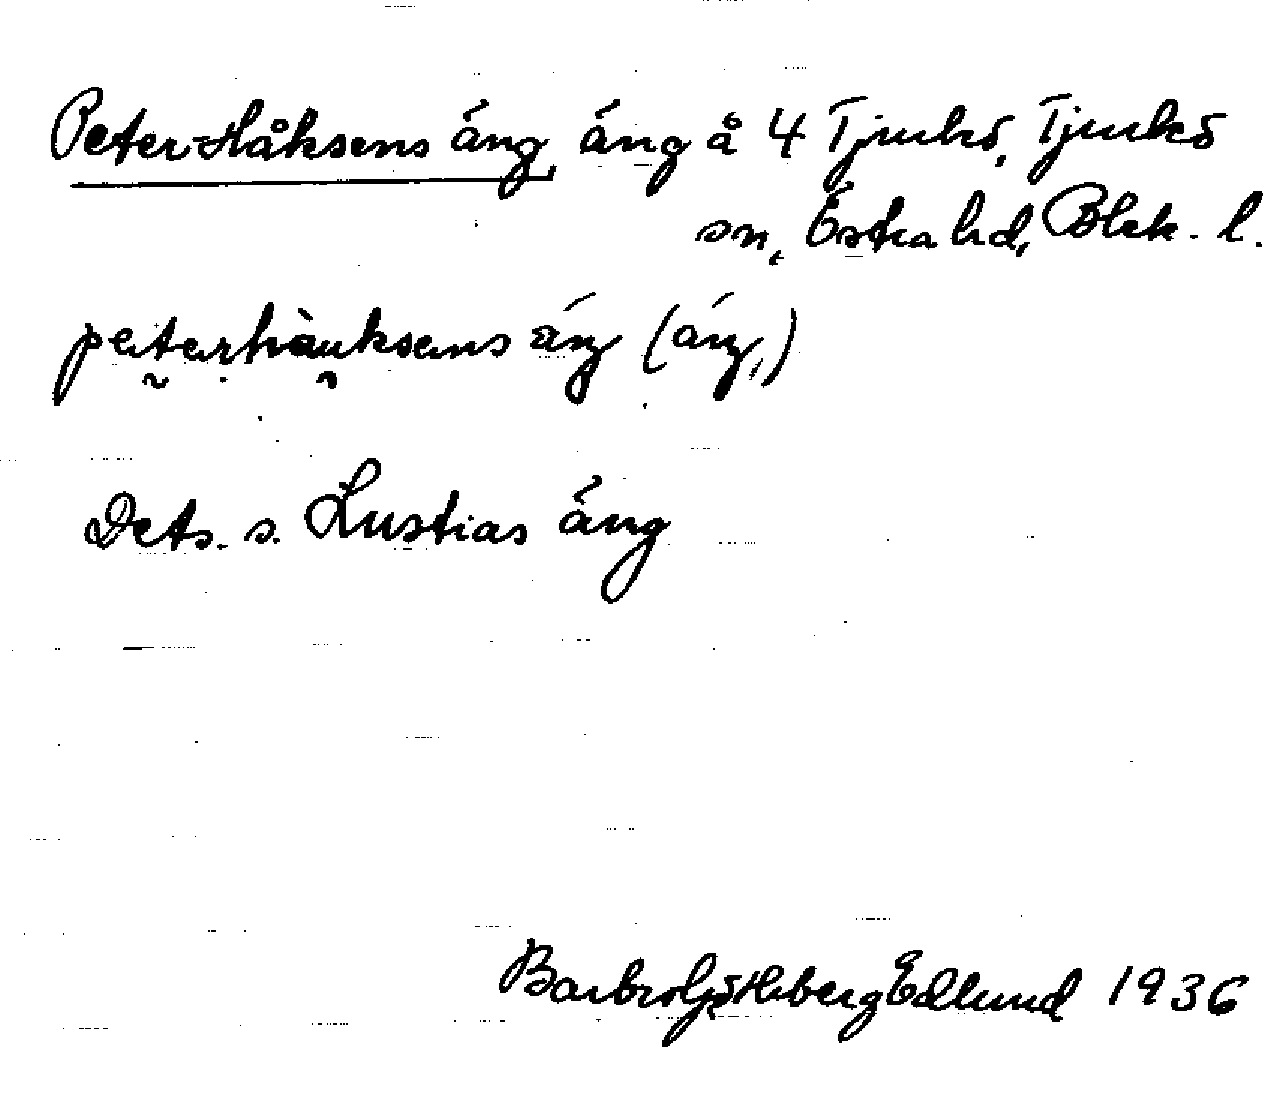 Peter Håksens äng, äng å 4 Tjurkö, Tjurkö
sn, Östra hd, Blek. l.
peterhàuksens äŋ (äŋ,)
Dets. s. Lustias äng
Barbro Götherberg Edlund 1936